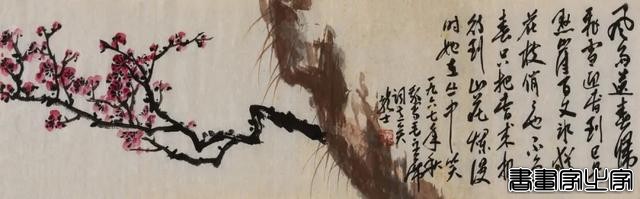 风雨送春归
飞雪迎春到已是
悬崖百丈冰犹有
花枝俏俏也不争
春只把春来报
待到山花烂漫
时她在丛中笑
一九六七年秋
敬写毛主席
词意
書畫家